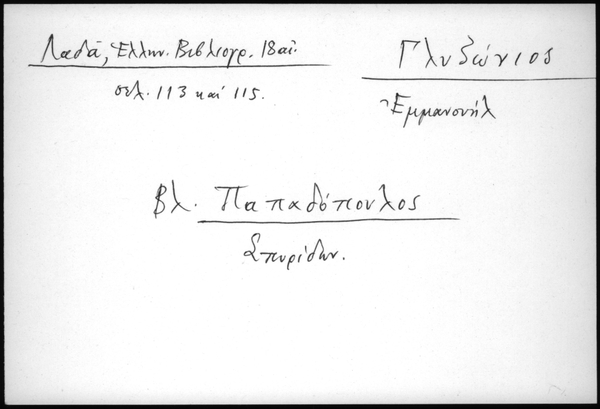 Λαδᾶ, Ἑλλην. Βιβλιογρ. 18 αἰ.
σελ. 113 καὶ 115.
Γλυζώνιος
Ἐμμανουήλ
Βλ. Παπαδόπουλος
Σπυρίδων.